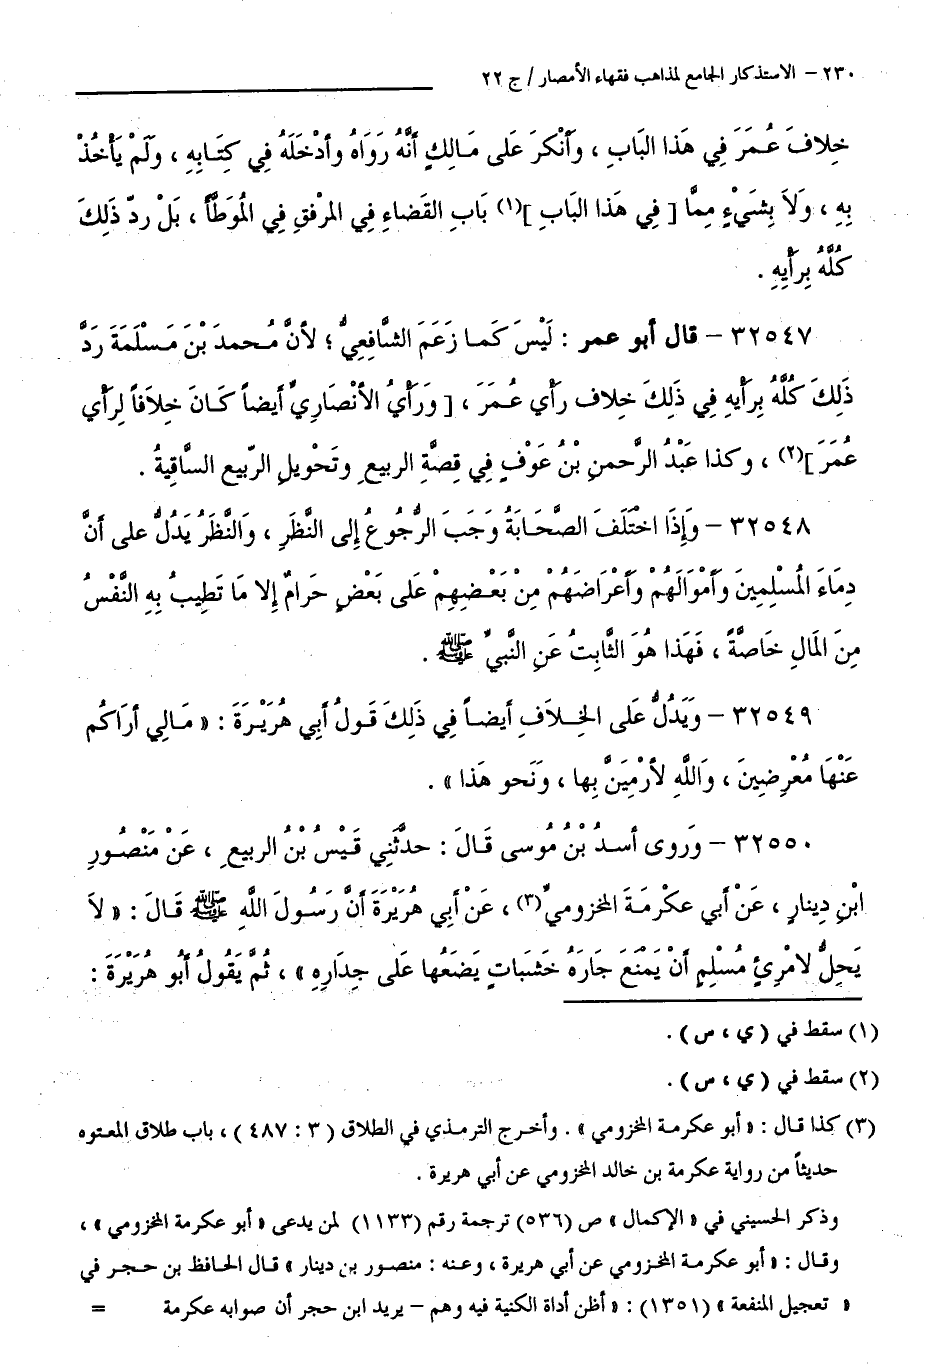 ٢٣٠ - الاستذكار الجامع لمذاهب فقهاء الأمصار / ج ٢٢
خِلافَ عُمَرَ فِي هَذا البَابِ ، وأَنْكرَ عَلى مَالِكٍ أَنَّهُ رَوَاهُ وأدْخَلَهُ فِي كِتَابِهِ ، ولَمْ يَأْخُذْ
بِهِ ، وَلاَ بِشَيْءٍ مِمَّا [ فِي هَذا البَابِ ](١) بَابِ القَضاءِ فِي المرْفقِ فِي المُوَطَّأ ، بَلْ ردّ ذَلِكَ
كُلَّهُ بِرَأْيِهِ .
٣٢٥٤٧ - قال أبو عمر : لَيْسَ كَما زَعَمَ الشَّافِعِيُّ ؛ لأنَّ مُحمدَ بْنَ مَسْلَمَةَ رَدَّ
ذَلِكَ كُلَّهُ بِرَأْيهِ فِي ذَلِكَ خِلاف رَأْي عُمَرَ ، [ ورَأْيُ الأنْصَارِيِّ أيضاً كَانَ خِلاَفاً لِرَأْي
عُمَرَ ](٢) ، وكذا عَبْدُ الرَّحمنِ بْنُ عَوْفٍ فِي قِصَّةِ الربيعِ وتَحْويلِ الرّبيع السَّاقِيةُ .
٣٢٥٤٨ - وَإِذَا اخْتَلَفَ الصَّحَابَةُ وَجَبَ الرُّجُوعُ إِلى النَّظَرِ ، وَالنَّظَرُ يَدُلُّ على أنَّ
دِمَاءَ المُسْلِمِينَ وَأَمْوَالَهُمْ وَأعْرَاضَهُمْ مِنْ بَعْضِهِمْ عَلى بَعْضٍ حَرامٌ إلا مَا تَطِيبُ بِهِ النَّفْسُ
مِنَ المَالِ خَاصَّةً ، فَهَذا هُوَ الثَّابِتُ عَنِ النَّبيِّ ﷺ .
٣٢٥٤٩ - وَيَدُلُّ عَلى الخِلاَفِ أيضاً فِي ذَلِكَ قَولُ أبِي هُرَيْرَةَ : « مَالِي أرَاكُم
عَنْهَا مُعْرِضِينَ ، وَاللَّهِ لأرْمِيَنَّ بِها ، وَنَحو هَذا » .
٣٢٥٥٠ - وَروى أسدُ بْنُ مُوسى قَالَ : حدثَّنِي قَيْسُ بْنُ الربيعِ ، عَنْ مَنْصُورِ
ابْنِ دِينارٍ ، عَنْ أبِي عكْرِمَةَ المخزوميِّ(٣) ، عَنْ أَبِي هُرَيْرَةَ أنَّ رَسُولَ اللَّهِ ﷺ قَالَ : « لاَ
يَحِلُّ لامْرِئٍ مُسْلِمٍ أنْ يَمْنَعَ جَارَهُ خَشَبَاتٍ يَضَعُها عَلَى جِدَارِهِ » ، ثُمَّ يَقُولُ أَبُو هُرَيْرَةَ :
(١) سقط في ( ي ، س ) .
(٢) سقط في ( ي ، س ) .
(٣) كذا قال : « أبو عكرمة المخزومي » . وأخرج الترمذي في الطلاق ( ٣ : ٤٨٧ ) ، باب طلاق المعتوه
حديثاً من رواية عكرمة بن خالد المخزومي عن أبي هريرة .
وذكر الحسيني في « الإكمال » ص (٥٣٦) ترجمة رقم (١١٣٣) لمن يدعى « أبو عكرمة المخزومي » ،
وقال : « أبو عكرمة المخزومي عن أبي هريرة ، وعنه : منصور بن دينار » قال الحافظ بن حجر في
« تعجيل المنفعة » (١٣٥١) : « أظن أداة الكنية فيه وهم - يريد ابن حجر أن صوابه عكرمة =